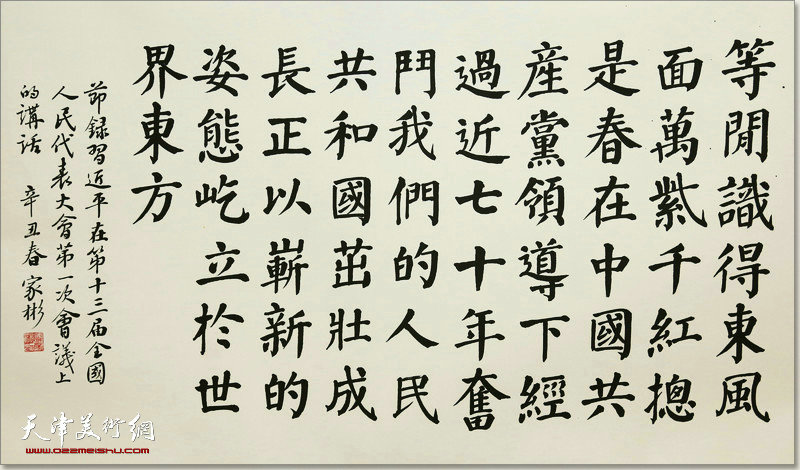 等閒識得東風
面萬紫千紅摠
是春在中國共
産黨領導下經
過近七十年奮
鬥我們的人民
共和國茁壯成
長正以嶄新的
姿態屹立於世
界東方
節録習近平在第十三届全國
人民代表大會第一次會議上
的講話 辛丑春 家彬
天津美術網
www.022meishu.com